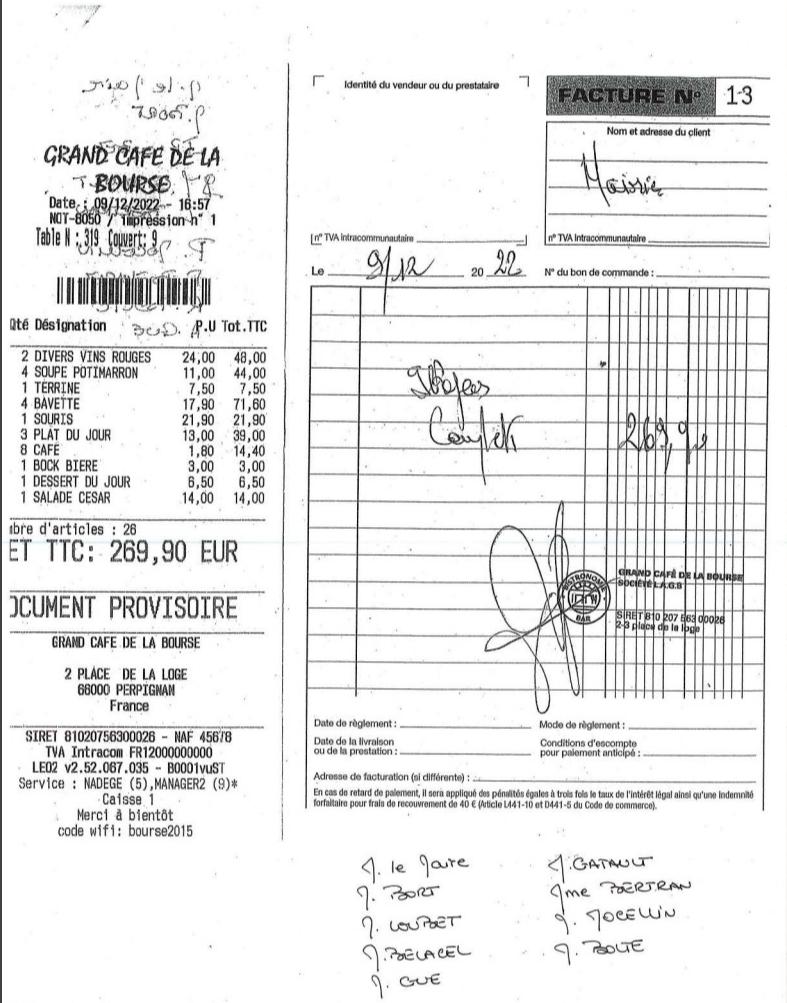 GRAND CAFE DE LA
BOURSE
Date : 09/12/2022 - 16:57
NOT-8050 / impression n° 1
Table N : 319 Couvert: 9
Qté Désignation P.U Tot.TTC
2 DIVERS VINS ROUGES 24,00 48,00
4 SOUPE POTIMARRON 11,00 44,00
1 TERRINE 7,50 7,50
4 BAVETTE 17,90 71,60
1 SOURIS 21,90 21,90
3 PLAT DU JOUR 13,00 39,00
8 CAFE 1,80 14,40
1 BOCK BIERE 3,00 3,00
1 DESSERT DU JOUR 6,50 6,50
1 SALADE CESAR 14,00 14,00
mbre d'articles : 26
ET TTC: 269,90 EUR
OCUMENT PROVISOIRE
GRAND CAFE DE LA BOURSE
2 PLACE DE LA LOGE
66000 PERPIGNAN
France
SIRET 81020756300026 - NAF 45678
TVA Intracom FR12000000000
LEO2 v2.52.067.035 - B0001vuST
Service : NADEGE (5),MANAGER2 (9)*
Caisse 1
Merci à bientôt
code wifi: bourse2015
Identité du vendeur ou du prestataire
FACTURE N° 13
Nom et adresse du client
Mairie
n° TVA Intracommunautaire
n° TVA Intracommunautaire
Le 9/12 20 22 N° du bon de commande :
9 Repas
Complets 269,90
GASTRONOMIE
BAR
GRAND CAFÉ DE LA BOURSE
SOCIÉTÉ L.A.G.B
SIRET 810 207 563 00026
2-3 place de la loge
Date de règlement : Mode de règlement :
Date de la livraison
ou de la prestation : Conditions d'escompte
pour paiement anticipé :
Adresse de facturation (si différente) :
En cas de retard de paiement, il sera appliqué des pénalités égales à trois fois le taux de l'intérêt légal ainsi qu'une indemnité
forfaitaire pour frais de recouvrement de 40 € (Article L441-10 et D441-5 du Code de commerce).
M. le Maire M. GATAULT
M. BORT Mme BERTRAN
M. LOUBET M. JOCELLIN
M. BELACEL M. BOLTE
M. GUE